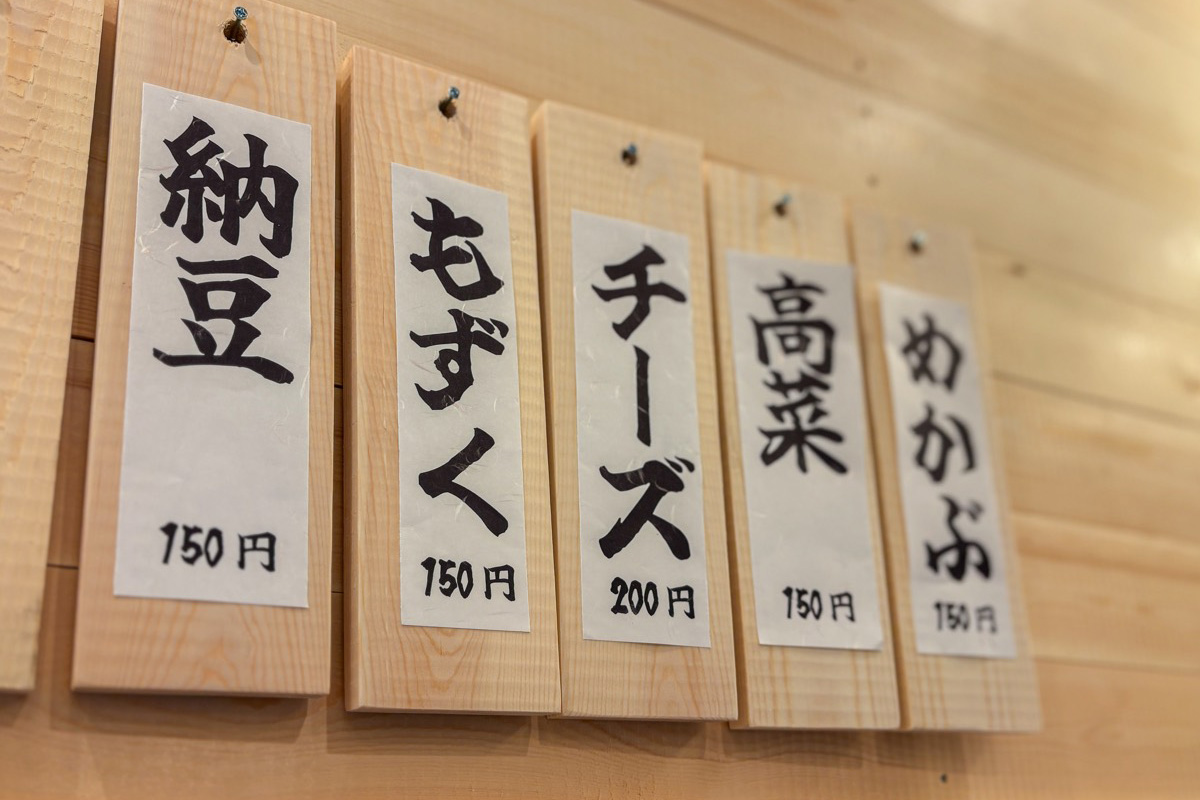 納豆
150円
もずく
150円
チーズ
200円
高菜
150円
めかぶ
150円